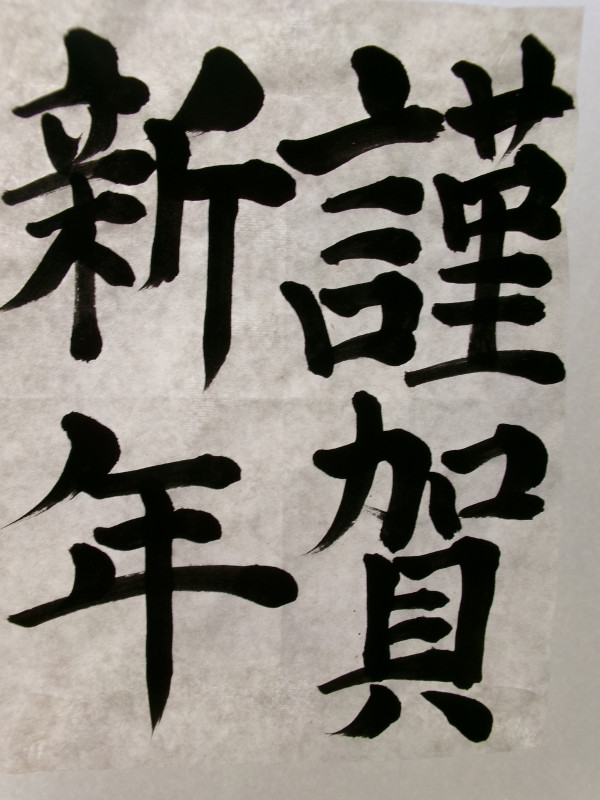 謹賀
新年